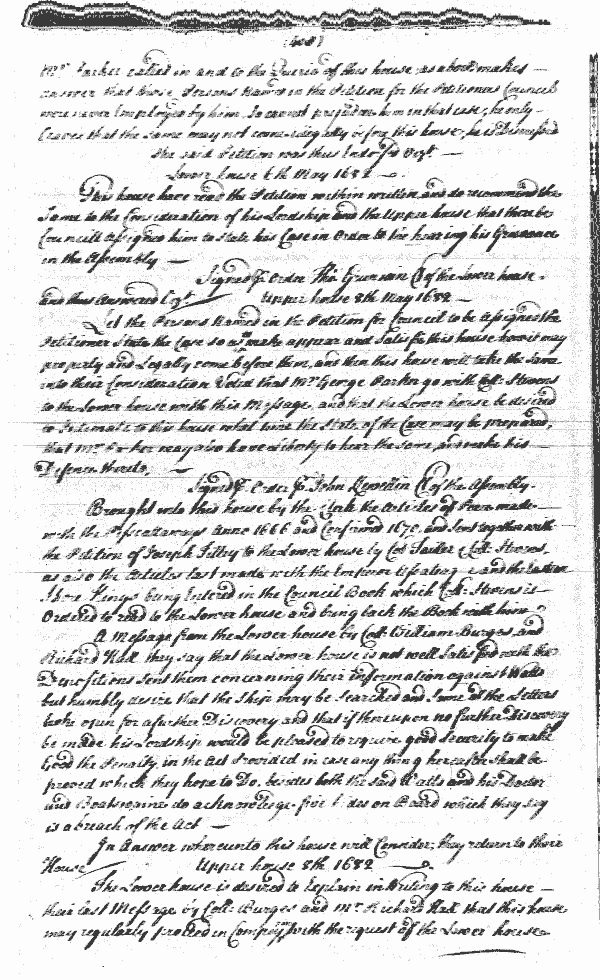 (408)
Mr Parker called in and to the Queries of this house, as above makes
answer that those Persons Named in the Petition for the Petitioners Councel
were never Employed by him, So cannot prejudice him in that case, he only
Craves that the same may not come illegally before this house, he is Dismissed
The said Petition was thus Endorsed Vizt.
Lower house 6th May 1682.
This house have read the Petition within written, and do recommend the
Same to the Consideration of his Lordship and the Upper house that there be
Councill Assigned him to State his Case in Order to the hearing his Grievance
in the Assembly
Signed P. Order Tho. Grunwin Cl. of the Lower house.
and thus Answered Vizt Upper house 8th May 1682
Let the Persons Named in the Petition for Council to be Assigned the
Petitioner State the Case so as make appear and Satisfie this house how it may
properly and Legally come before them, and then this house will take the same
into their Consideration Voted that Mr. George Parker go with Coll. Stevens
to the Lower house with this Message, and that the Lower house be desired
to Intimate to this house what time the State of the Case may be prepared,
that Mr. Parker may also have liberty to hear the same, and make his
Defence thereto,
Signed P. Order P. John Llewellin Cl. of the Assembly.
Brought into this house by the Clerk the Articles of Peace made
with the Pisscattaways Anno 1666 and Confirmed 1670, and sent together with
the Petition of Joseph Tilley to the Lower house by Col Tailer & Coll. Stevens,
as also the Articles last made with the Emperor and the Eastern
Shore Kings being Entered in the Council Book which Coll. Stevens is
Ordered to read to the Lower house and bring back the Book with him
A Message from the Lower house by Coll. William Burges, and
Richard Hall they say that the Lower house is not well Satisfied with the
Depositions sent them concerning their Information against Watts
but humbly desire that the Ship may be Searched and Some of the Letters
broke open for a further Discovery and that if thereupon no further Discovery
be made his Lordship would be pleased to require good Security to make
Good the Penalty, in the Act Provided in case any thing hereafter shall be
proved which they hope to Do, besides both the said Watts and his Doctor
and Boatswaine do acknowledge five hides on Board which they say
is a breach of the Act
In Answer whereunto this house will Consider; they return to their
House Upper house 8th 1682
The Lower house is desired to Explain in Writing to this house
their last Message by Coll. Burges and Mr. Richard Hall that this house
may regularly proceed in Complying with the request of the Lower house